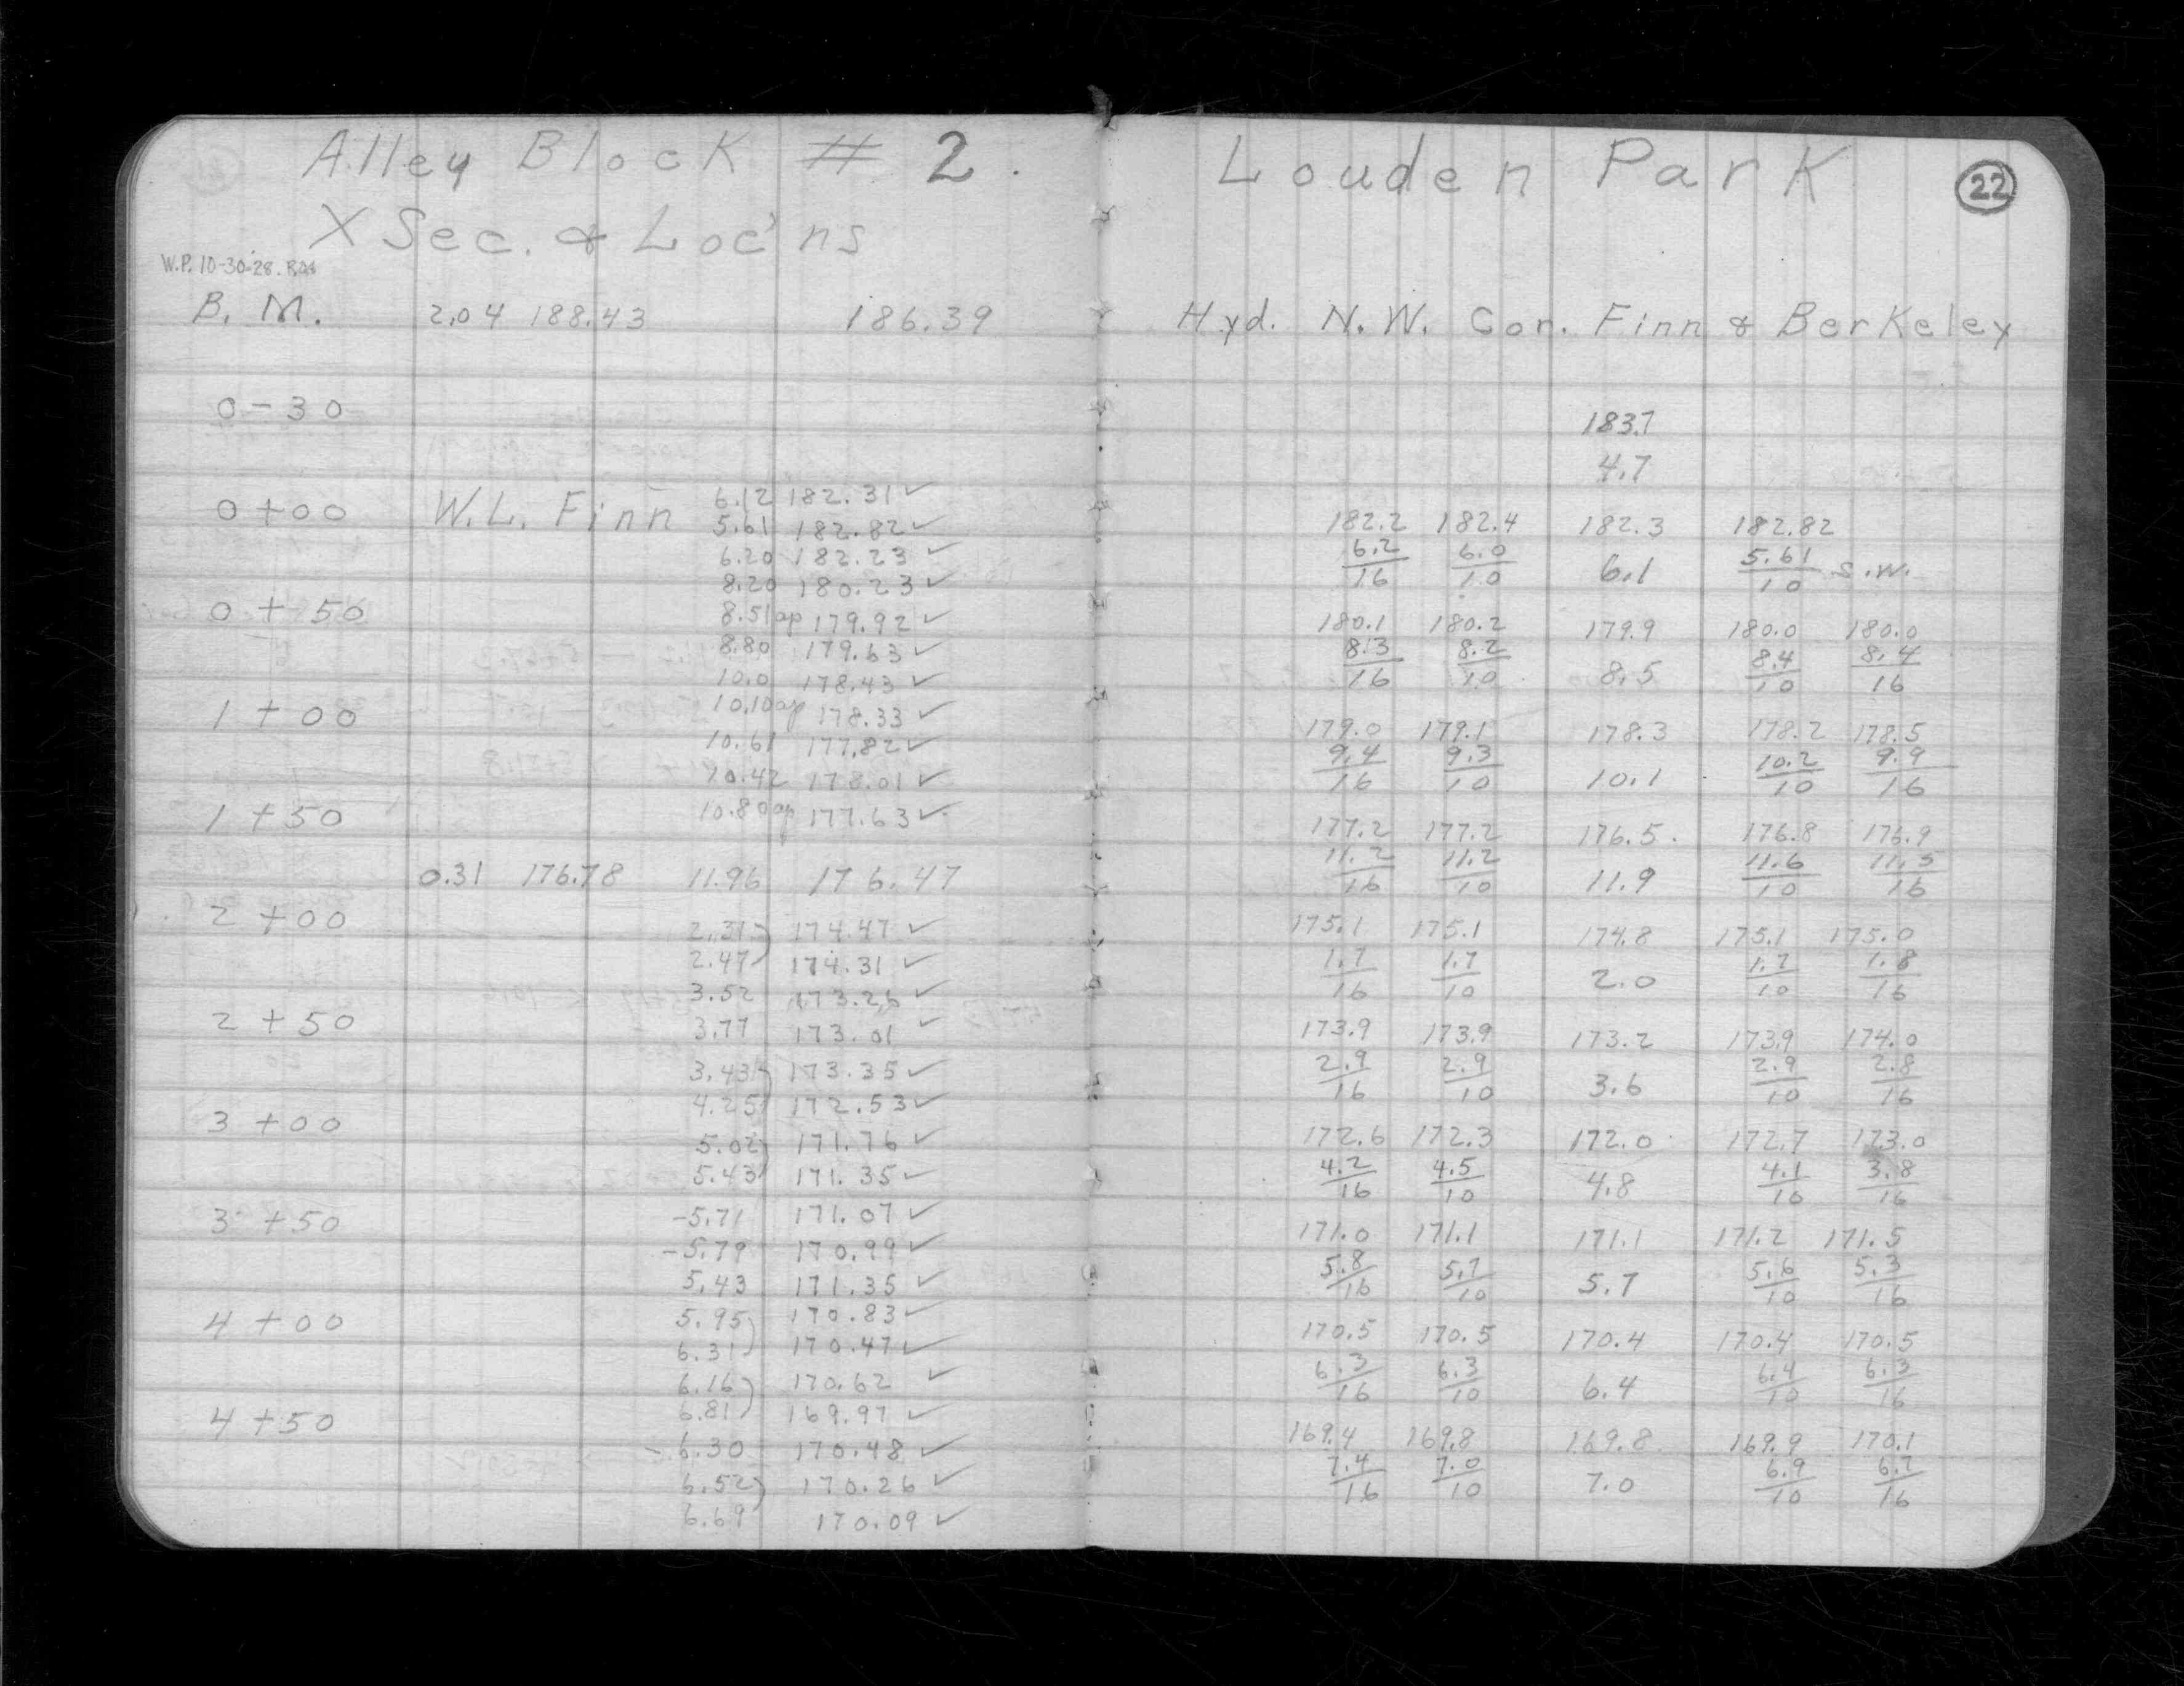 Alley Block # 2. Louden Park 22
X Sec. & Loc'ns
W.P. 10-30-28.
B. M. 2.04 188.43 186.39 Hyd. N.W. Cor. Finn & Berkeley
0-30 183.7
4.7
6.12 182.31 ✓
0+00 W.L. Finn 5.61 182.82 ✓ 182.2 182.4 182.3 182.82
6.20 182.23 ✓ 6.2/16 6.0/10 6.1 5.61/10 S.W.
8.20 180.23 ✓
0+50 8.51 op 179.92 ✓ 180.1 180.2 179.9 180.0 180.0
8.80 179.63 ✓ 8.3/16 8.2/10 8.5 8.4/10 8.4/16
10.0 178.43 ✓
1+00 10.10 op 178.33 ✓ 179.0 179.1 178.3 178.2 178.5
10.61 177.82 ✓ 9.4/16 9.3/10 10.1 10.2/10 9.9/16
10.42 178.01 ✓
1+50 10.80 op 177.63 ✓ 177.2 177.2 176.5 176.8 176.9
0.31 176.78 11.96 176.47 11.2/16 11.2/10 11.9 11.6/10 11.5/16
2+00 2.31 174.47 ✓ 175.1 175.1 174.8 175.1 175.0
2.47 174.31 ✓ 1.7/16 1.7/10 2.0 1.7/10 1.8/16
3.52 173.26 ✓
2+50 3.77 173.01 ✓ 173.9 173.9 173.2 173.9 174.0
3.43 173.35 ✓ 2.9/16 2.9/10 3.6 2.9/10 2.8/16
4.25 172.53 ✓
3+00 5.02 171.76 ✓ 172.6 172.3 172.0 172.7 173.0
5.43 171.35 ✓ 4.2/16 4.5/10 4.8 4.1/10 3.8/16
3+50 -5.71 171.07 ✓ 171.0 171.1 171.1 171.2 171.5
-5.79 170.99 ✓ 5.8/16 5.7/10 5.7 5.6/10 5.3/16
5.43 171.35 ✓
4+00 5.95 170.83 ✓ 170.5 170.5 170.4 170.4 170.5
6.31 170.47 ✓ 6.3/16 6.3/10 6.4 6.4/10 6.3/16
6.16 170.62 ✓
4+50 6.81 169.97 ✓ 169.4 169.8 169.8 169.9 170.1
-6.30 170.48 ✓ 7.4/16 7.0/10 7.0 6.9/10 6.7/16
6.52 170.26 ✓
6.69 170.09 ✓